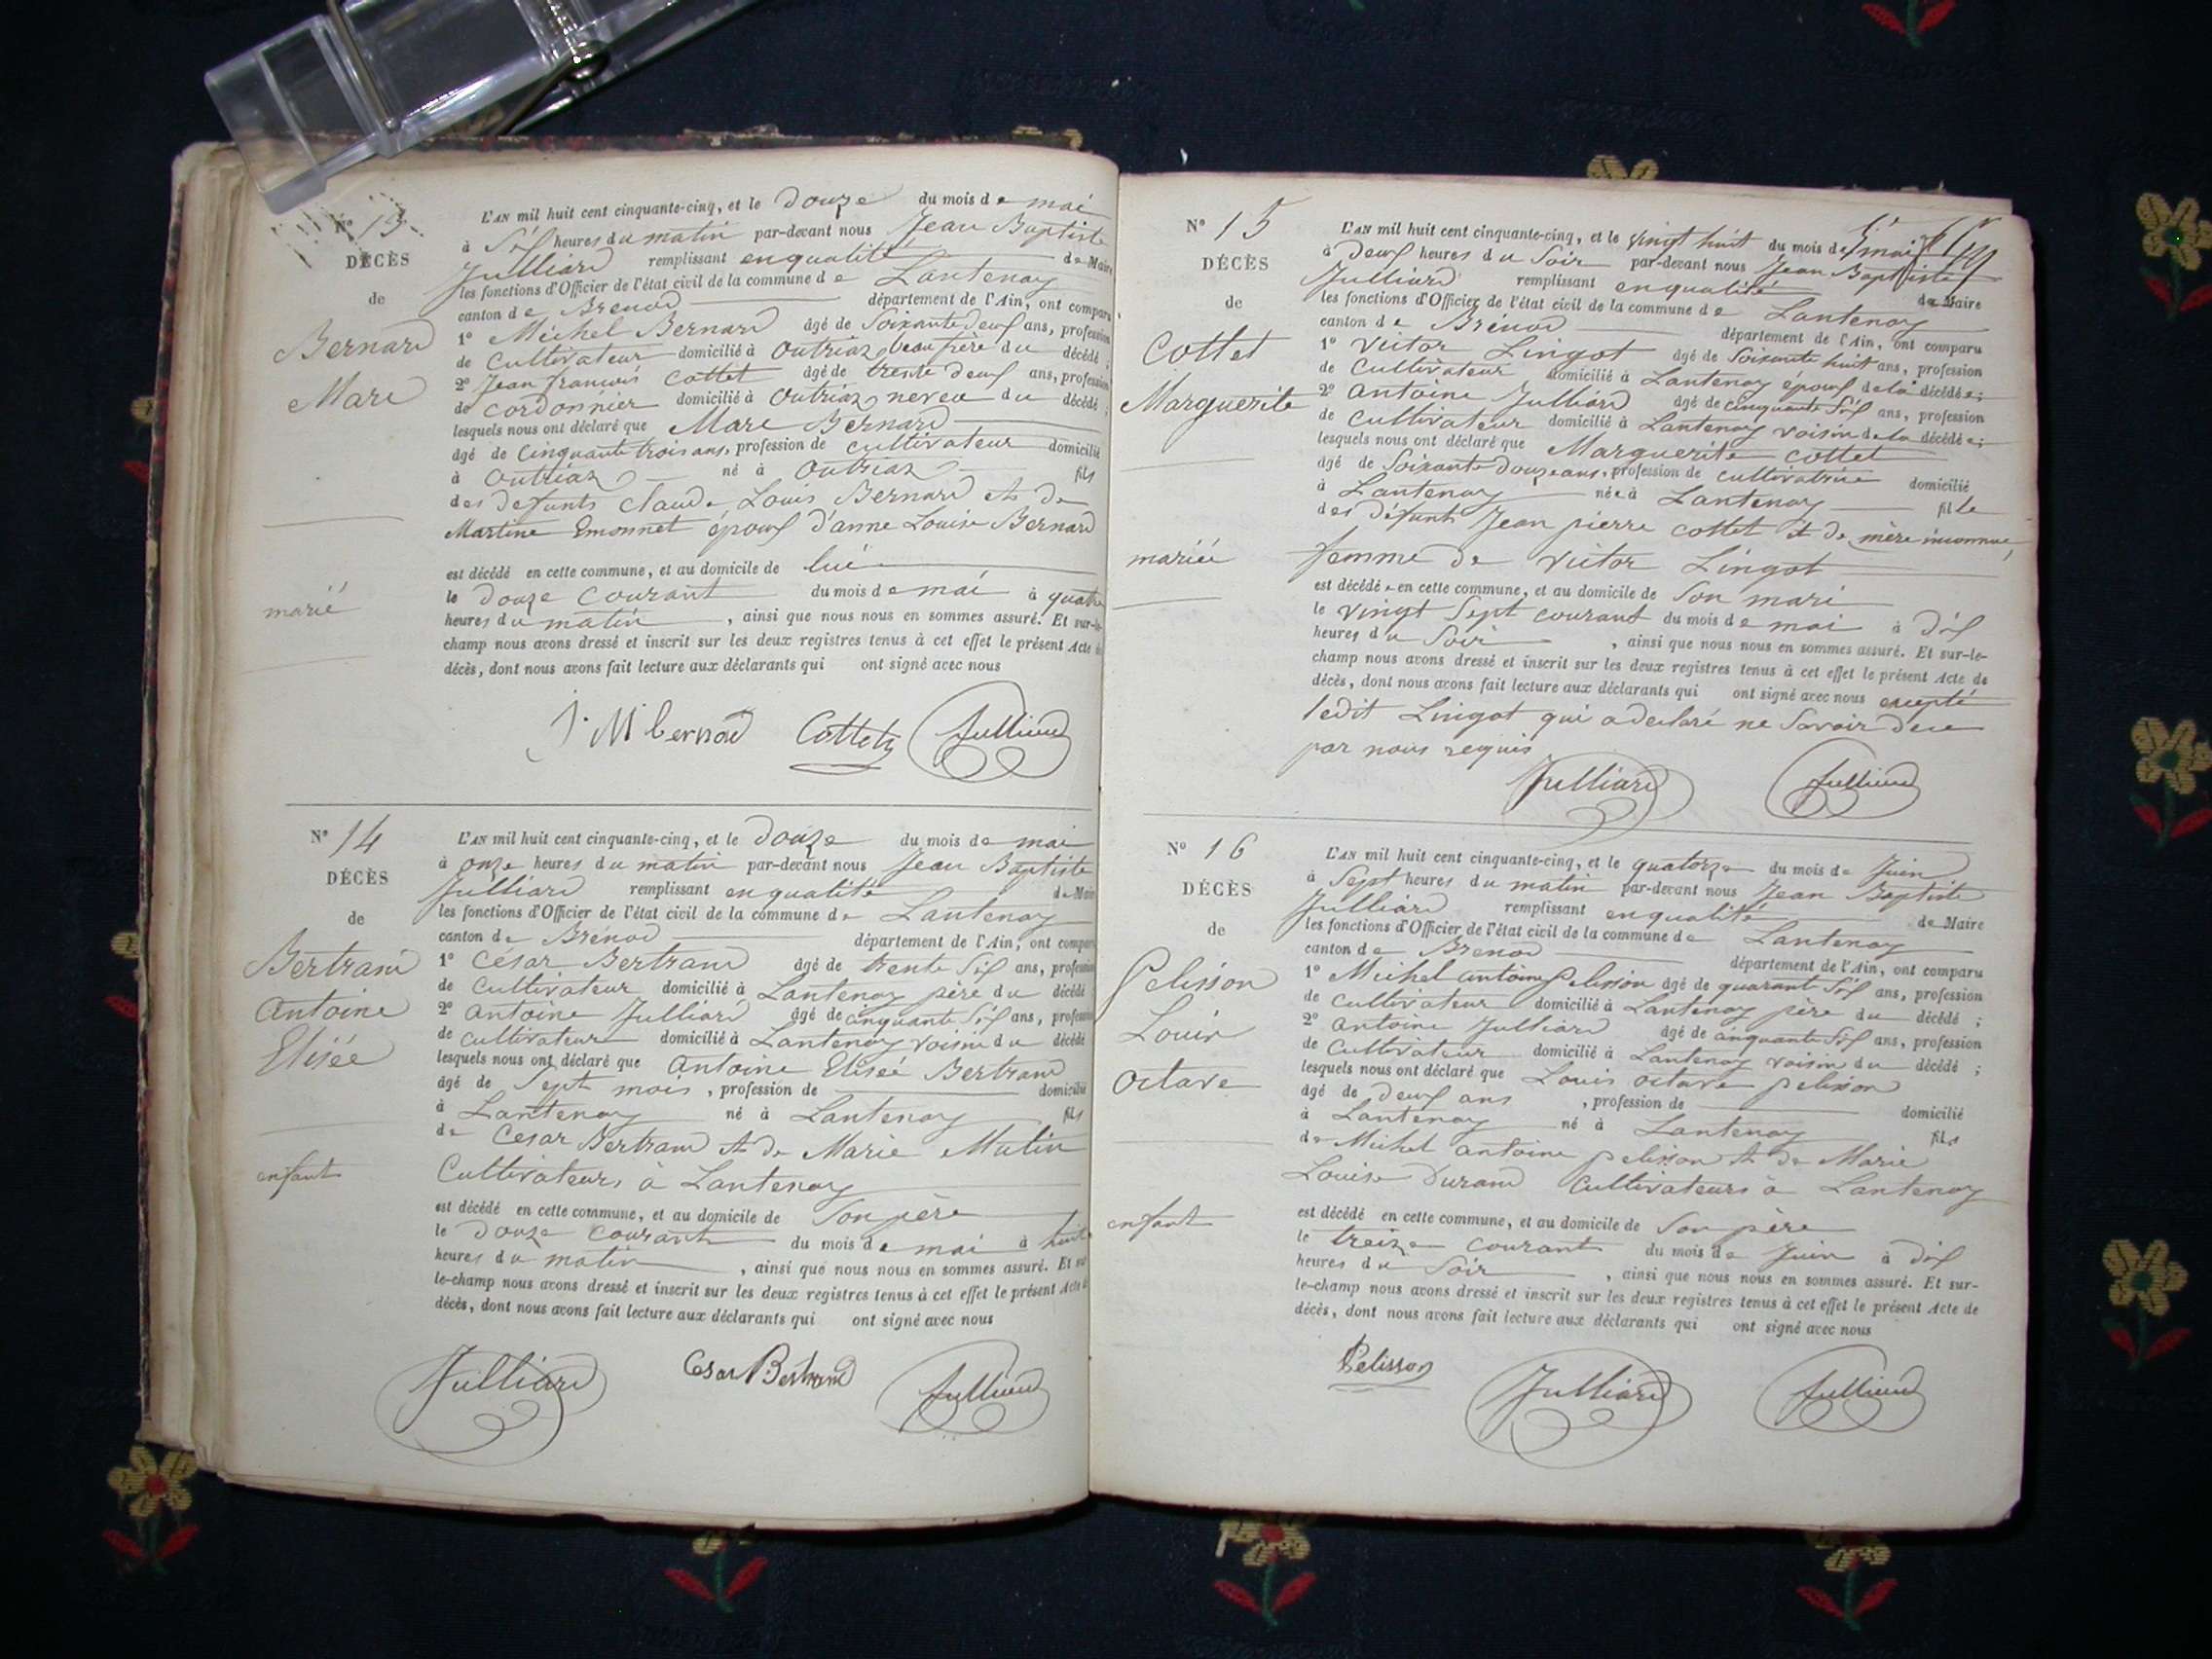 N° 13
DÉCÈS
de
Bernard
Marc
marié
L'AN mil huit cent cinquante-cinq, et le douze du mois de mai
à Six heures du matin par-devant nous Jean Baptiste
Julliard remplissant en qualité de Maire
les fonctions d'Officier de l'état civil de la commune de Lantenay
canton de Brenod département de l'Ain, ont comparu
1° Michel Bernard âgé de Soixante deux ans, profession
de Cultivateur domicilié à Outriaz beau frère du décédé;
2° Jean francois Cottet âgé de trente deux ans, profession
de Cordonnier domicilié à Outriaz neveu du décédé;
lesquels nous ont déclaré que Marc Bernard
âgé de Cinquante trois ans, profession de cultivateur domicilié
à Outriaz né à Outriaz fils
des defunts Claude Louis Bernard et de
Martine Emonnet époux d'anne Louise Bernard
est décédé en cette commune, et au domicile de lui
le douze courant du mois de mai à quatre
heures du matin, ainsi que nous nous en sommes assuré. Et sur-le-
champ nous avons dressé et inscrit sur les deux registres tenus à cet effet le présent Acte de
décès, dont nous avons fait lecture aux déclarants qui ont signé avec nous
J. M bernard Cottet Julliard
N° 14
DÉCÈS
de
Bertrand
Antoine
Elisée
enfant
L'AN mil huit cent cinquante-cinq, et le douze du mois de mai
à onze heures du matin par-devant nous Jean Baptiste
Julliard remplissant en qualité de Maire
les fonctions d'Officier de l'état civil de la commune de Lantenay
canton de Brénod département de l'Ain, ont comparu
1° César Bertrand âgé de trente Six ans, profession
de Cultivateur domicilié à Lantenay père du décédé
2° Antoine Julliard âgé de cinquante Six ans, profession
de cultivateur domicilié à Lantenay voisin du décédé
lesquels nous ont déclaré que Antoine Elisée Bertrand
âgé de Sept mois, profession de domicilié
à Lantenay né à Lantenay fils
de César Bertrand et de Marie Mulin
Cultivateurs à Lantenay
est décédé en cette commune, et au domicile de Son père
le douze courant du mois de mai à huit
heures du matin, ainsi que nous nous en sommes assuré. Et sur
le-champ nous avons dressé et inscrit sur les deux registres tenus à cet effet le présent Acte de
décès, dont nous avons fait lecture aux déclarants qui ont signé avec nous
Julliard César Bertrand Julliard
N° 15
DÉCÈS
de
Cottet
Marguerite
mariée
L'AN mil huit cent cinquante-cinq, et le vingt huit du mois de mai
à deux heures du Soir par-devant nous Jean Baptiste
Julliard remplissant en qualité de Maire
les fonctions d'Officier de l'état civil de la commune de Lantenay
canton de Brénod département de l'Ain, ont comparu
1° Victor Lingot âgé de Soixante huit ans, profession
de Cultivateur domicilié à Lantenay époux de la décédée;
2° Antoine Julliard âgé de cinquante Six ans, profession
de Cultivateur domicilié à Lantenay voisin de la décédée;
lesquels nous ont déclaré que Marguerite Cottet
âgé de Soixante douze ans, profession de cultivatrice domicilié
à Lantenay née à Lantenay fille
des défunts Jean pierre Cottet et de mère inconnue,
femme de Victor Lingot
est décédée en cette commune, et au domicile de Son mari
le vingt Sept courant du mois de mai à dix
heures du Soir, ainsi que nous nous en sommes assuré. Et sur-le-
champ nous avons dressé et inscrit sur les deux registres tenus à cet effet le présent Acte de
décès, dont nous avons fait lecture aux déclarants qui ont signé avec nous excepté
ledit Lingot qui a declaré ne Savoir de ce
par nous requis
Julliard Julliard
N° 16
DÉCÈS
de
Pelisson
Louis
Octave
enfant
L'AN mil huit cent cinquante-cinq, et le quatorze du mois de Juin
à Sept heures du matin par-devant nous Jean Baptiste
Julliard remplissant en qualité de Maire
les fonctions d'Officier de l'état civil de la commune de Lantenay
canton de Brenod département de l'Ain, ont comparu
1° Michel antoine Pelisson âgé de quarante Six ans, profession
de Cultivateur domicilié à Lantenay père du décédé;
2° Antoine Julliard âgé de cinquante Six ans, profession
de Cultivateur domicilié à Lantenay voisin du décédé;
lesquels nous ont déclaré que Louis octave pelisson
âgé de deux ans, profession de domicilié
à Lantenay né à Lantenay fils
de Michel antoine pelisson et de Marie
Louise Durand Cultivateurs à Lantenay
est décédé en cette commune, et au domicile de Son père
le treize courant du mois de Juin à dix
heures du Soir, ainsi que nous nous en sommes assuré. Et sur-
le-champ nous avons dressé et inscrit sur les deux registres tenus à cet effet le présent Acte de
décès, dont nous avons fait lecture aux déclarants qui ont signé avec nous
Pelisson Julliard Julliard